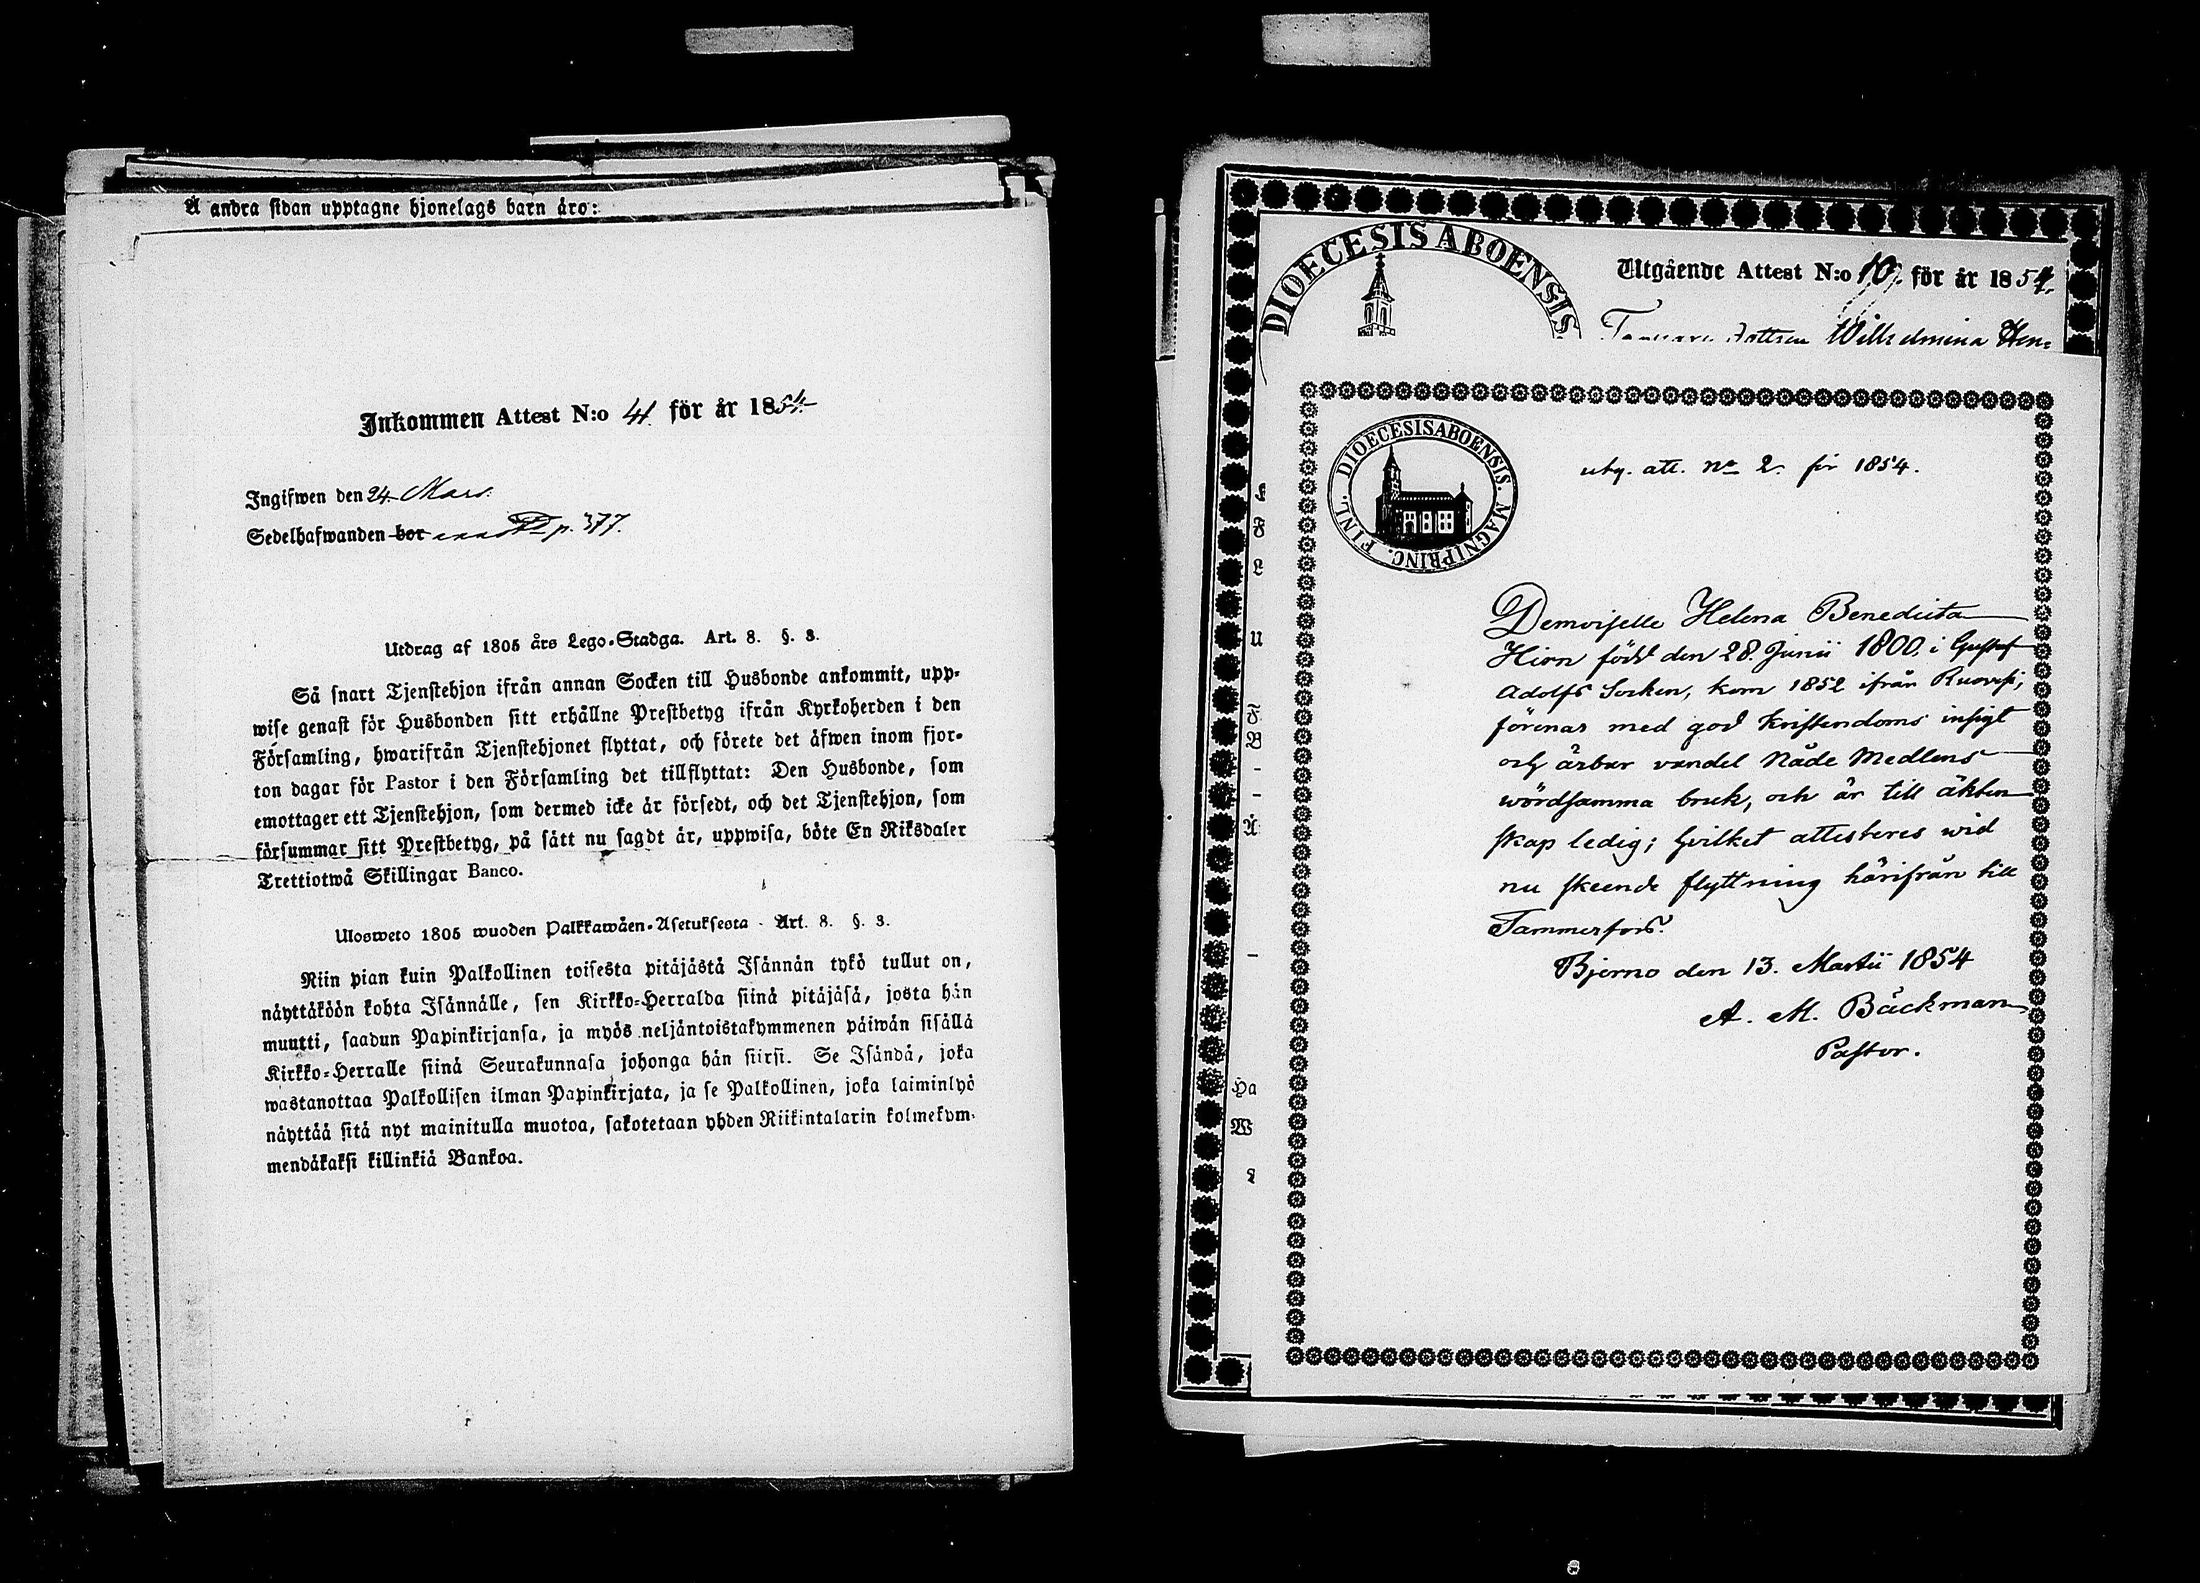 Å andra sidan upptagne hjonelags barn äro:
Inkommen Attest N:o 41. för år 1854.
Ingifwen den 24 Mars.
Sedelhafwanden bor p. 377.
Utdrag af 1805 års Lego-Stadga. Art. 8. §. 3.
Så snart Tjenstehjon ifrån annan Socken till Husbonde ankommit, upp-
wise genast för Husbonden sitt erhållne Prestbetyg ifrån Kyrkoherden i den
Församling, hwarifrån Tjenstehjonet flyttat, och förete det äfwen inom fjor-
ton dagar för Pastor i den Församling det tillflyttat: Den Husbonde, som
emottager ett Tjenstehjon, som dermed icke är försedt, och det Tjenstehjon, som
försummar sitt Prestbetyg, på sätt nu sagdt är, uppwisa, böte En Riksdaler
Trettiotwå Skillingar Banco.
Ulosweto 1805 wuoden Palkkawäen-Asetuksesta Art. 8. §. 3.
Niin pian kuin Palkollinen toisesta pitäjästä Isännän tykö tullut on,
näyttäköön kohta Isännälle, sen Kirkko-Herralda siinä pitäjäsä, josta hän
muutti, saadun Papinkirjansa, ja myös neljäntoistakymmenen päiwän sisällä
Kirkko-Herralle siinä Seurakunnasa johonga hän siirsi. Se Isändä, joka
wastanottaa Palkollisen ilman Papinkirjata, ja se Palkollinen, joka laiminlyö
näyttää sitä nyt mainitulla muotoa, sakotetaan yhden Riikintalarin kolmekym-
mendäkaksi killinkiä Bankoa.
DIOECESIS ABOENSIS
Utgående Attest N:o 10. för år 1854.
Wilhelmina Hen-
DIOECESIS ABOENSIS. MAGNI PRINC. FINL.
utg. att. No 2. för 1854.
Demoiselle Helena Benedicta
Hirn född den 28. Junii 1800. i Gustaf
Adolfs Socken, kom 1852 ifrån Ruovesi;
förenar med god kristendoms insigt
och ärbar vandel Nåde Medlens
wördsamma bruk, och är till äkten
skap ledig; hvilket attesteres wid
nu skeende flyttning härifrån till
Tammerfors.
Bjerno den 13. Martii 1854
A. M. Bäckman
Pastor.
L
F
L
U
F.
B
-
-
Ä
-
Ha
W
L